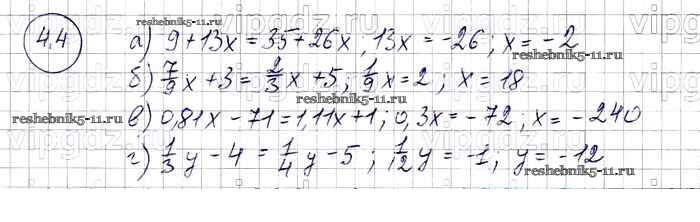 4.4
а) 9 + 13x = 35 + 26x, 13x = -26; x = -2
б) 7/9 x + 3 = 2/3 x + 5; 1/9 x = 2; x = 18
в) 0,81x - 71 = 1,11x + 1; 0,3x = -72; x = -240
г) 1/3 y - 4 = 1/4 y - 5; 1/12 y = -1; y = -12
reshebnik5-11.ru
reshebnik5-11.ru
reshebnik5-11.ru
reshebnik5-11.ru
reshebnik5-11.ru
reshebnik5-11.ru